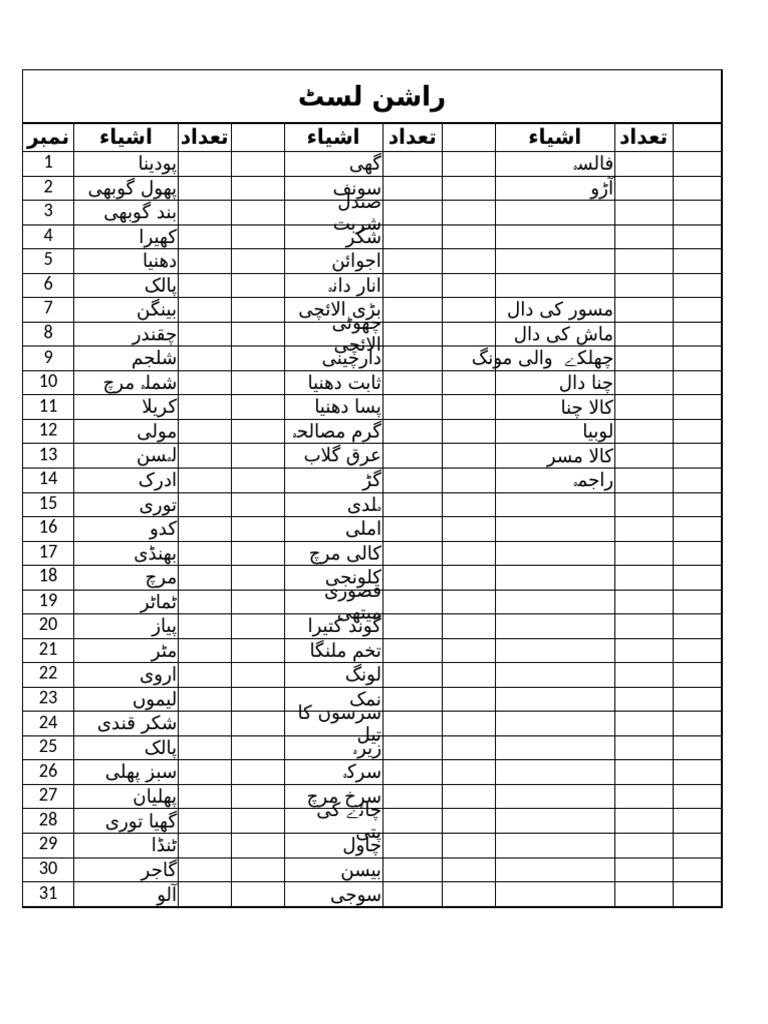 راشن لسٹ
نمبر اشیاء تعداد اشیاء تعداد اشیاء تعداد
1 پودینا گھی فالسہ
2 پھول گوبھی سونف آڑو
3 بند گوبھی صندل شربت
4 کھیرا شکر
5 دھنیا اجوائن
6 پالک انار دانہ
7 بینگن بڑی الائچی مسور کی دال
8 چقندر چھوٹی الائچی ماش کی دال
9 شلجم دارچینی چھلکے والی مونگ
10 شملہ مرچ ثابت دھنیا چنا دال
11 کریلا پسا دھنیا کالا چنا
12 مولی گرم مصالحہ لوبیا
13 لہسن عرق گلاب کالا مسر
14 ادرک گڑ راجمہ
15 توری ہلدی
16 کدو املی
17 بھنڈی کالی مرچ
18 مرچ کلونجی
19 ٹماٹر قصوری میتھی
20 پیاز گوند کتیرا
21 مٹر تخم ملنگا
22 اروی لونگ
23 لیموں نمک
24 شکر قندی سرسوں کا تیل
25 پالک زیرہ
26 سبز پھلی سرکہ
27 پھلیان سرخ مرچ
28 گھیا توری چائے کی پتی
29 ٹنڈا چاول
30 گاجر بیسن
31 آلو سوجی